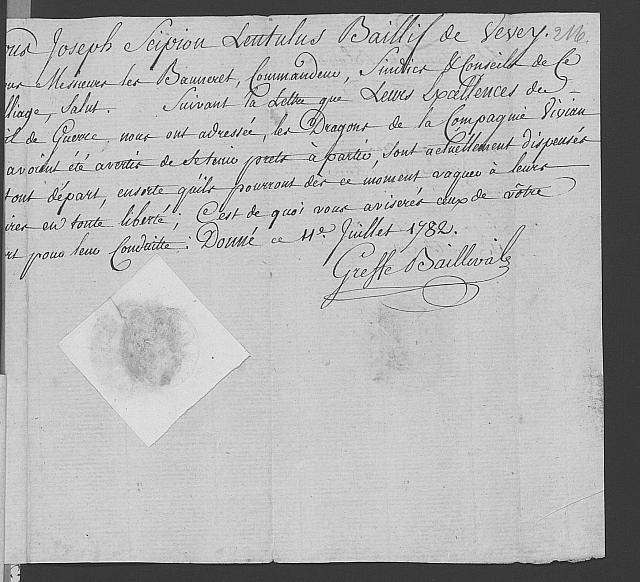 ous Joseph Scipion Lentulus Baillif de Vevey. 216.
ous Messieurs les Banneret, Commandeur, Sindics & Conseils de Ce
lliage, Salut. Suivant la Lettre que Leurs Excellences du
il de Guerre nous ont adressée, les Dragons de la Compagnie Vivian
avoient été avertis de se tenir prets à partir, sont actuellement dispensés
tout départ, ensorte qu'ils pourront dès ce moment vaquer à leurs
ires en toute liberté; C'est de quoi vous aviserés ceux de vôtre
rt pour leur Conduitte: Donné ce 11e. Juillet 1782.
Greffe Baillival